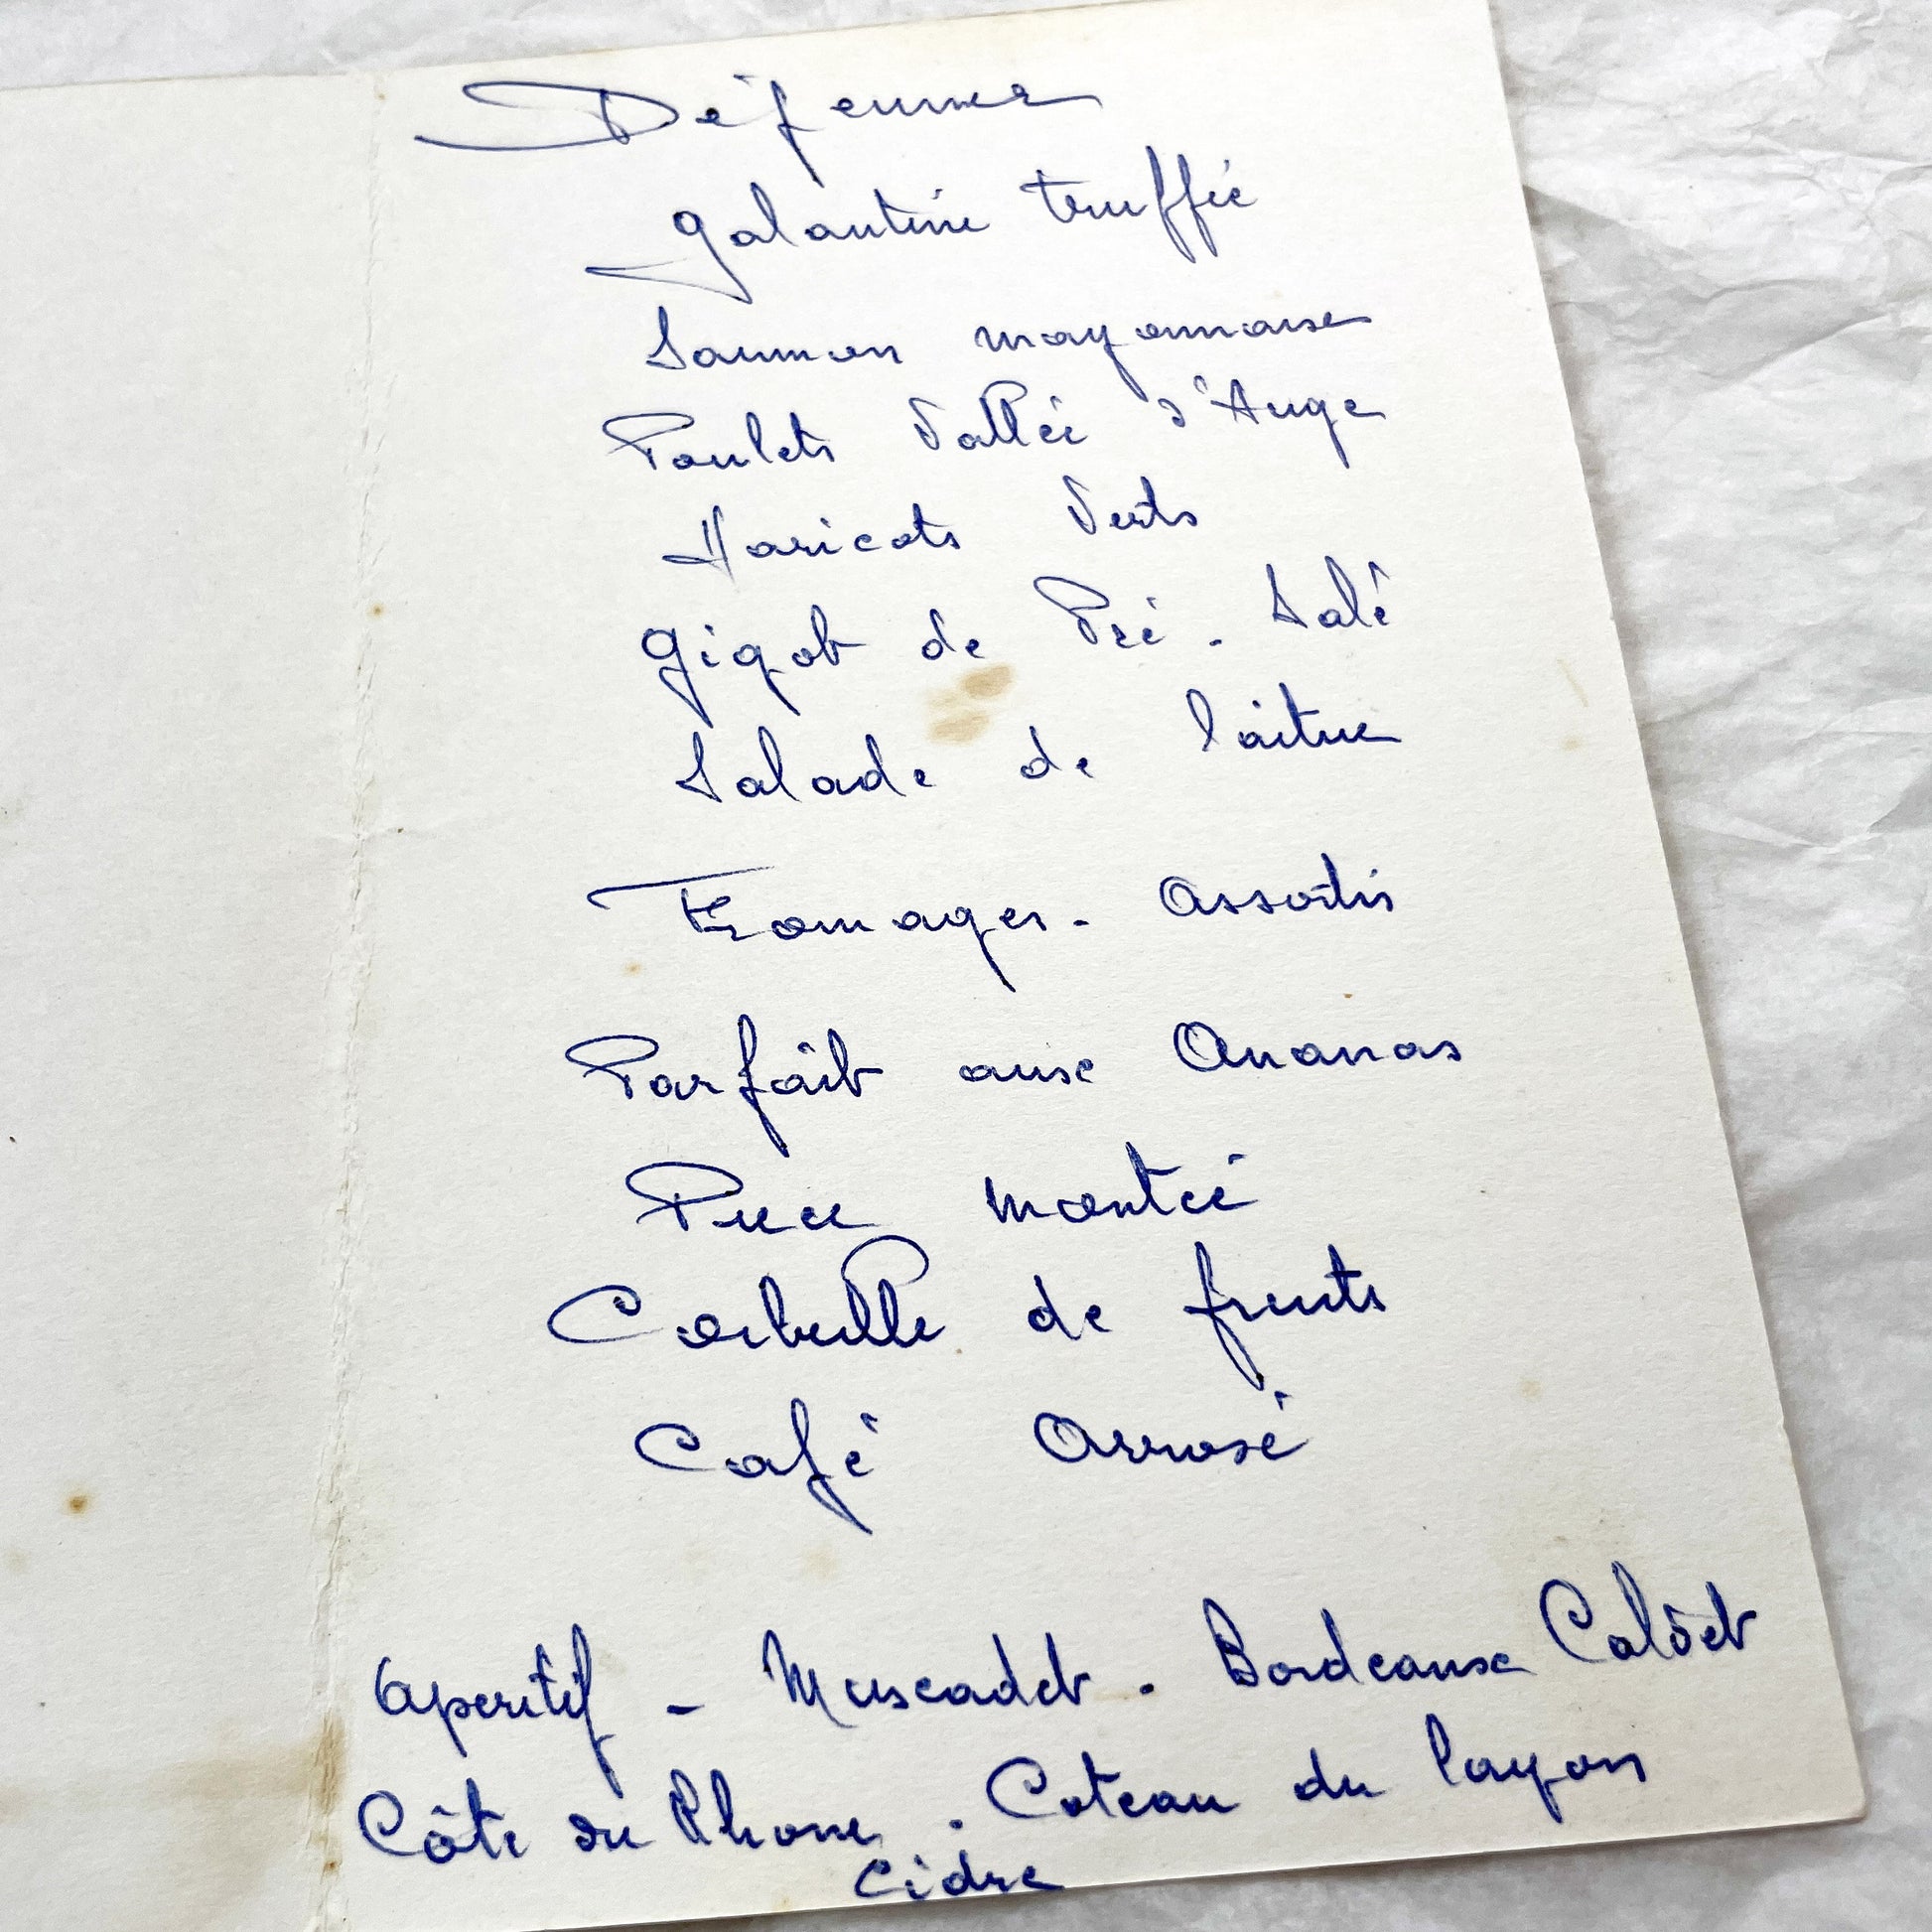 Déjeuner
Galantine truffée
Saumon mayonnaise
Poulets Vallée d'Auge
Haricots Verts
Gigot de Pré-Salé
Salade de laitue
Fromages - Assortis
Parfait aux Ananas
Piece montée
Corbeille de fruits
Café Arrosé
Aperitif - Muscadet - Bordeaux Calvet
Côte du Rhone - Coteau du Layon
Cidre